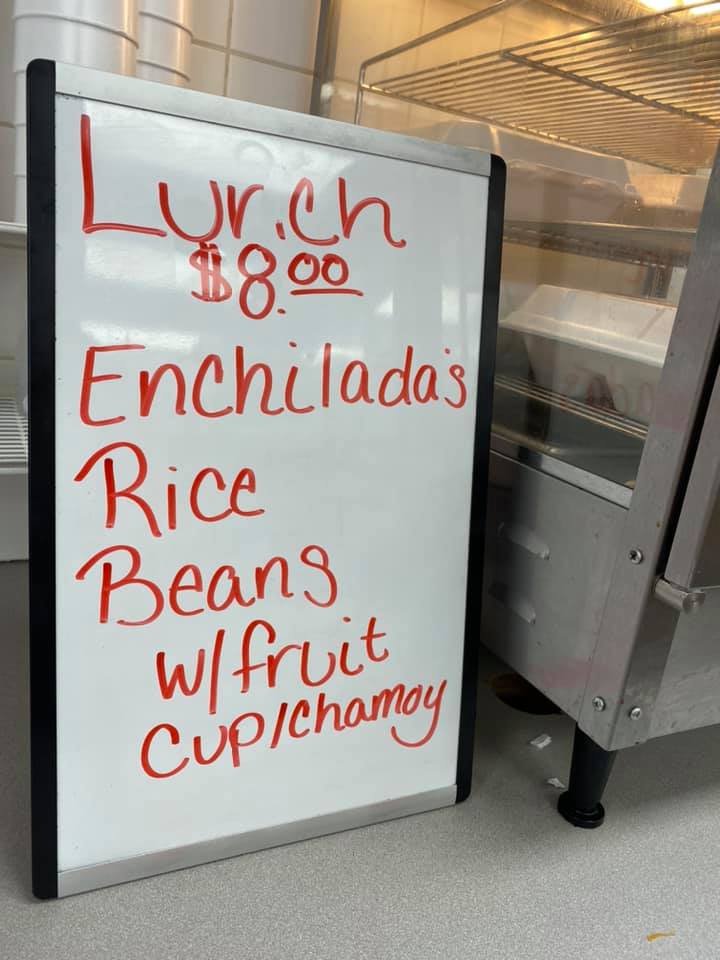 Lunch
$8.00
Enchilada's
Rice
Beans
w/fruit
cup/chamoy